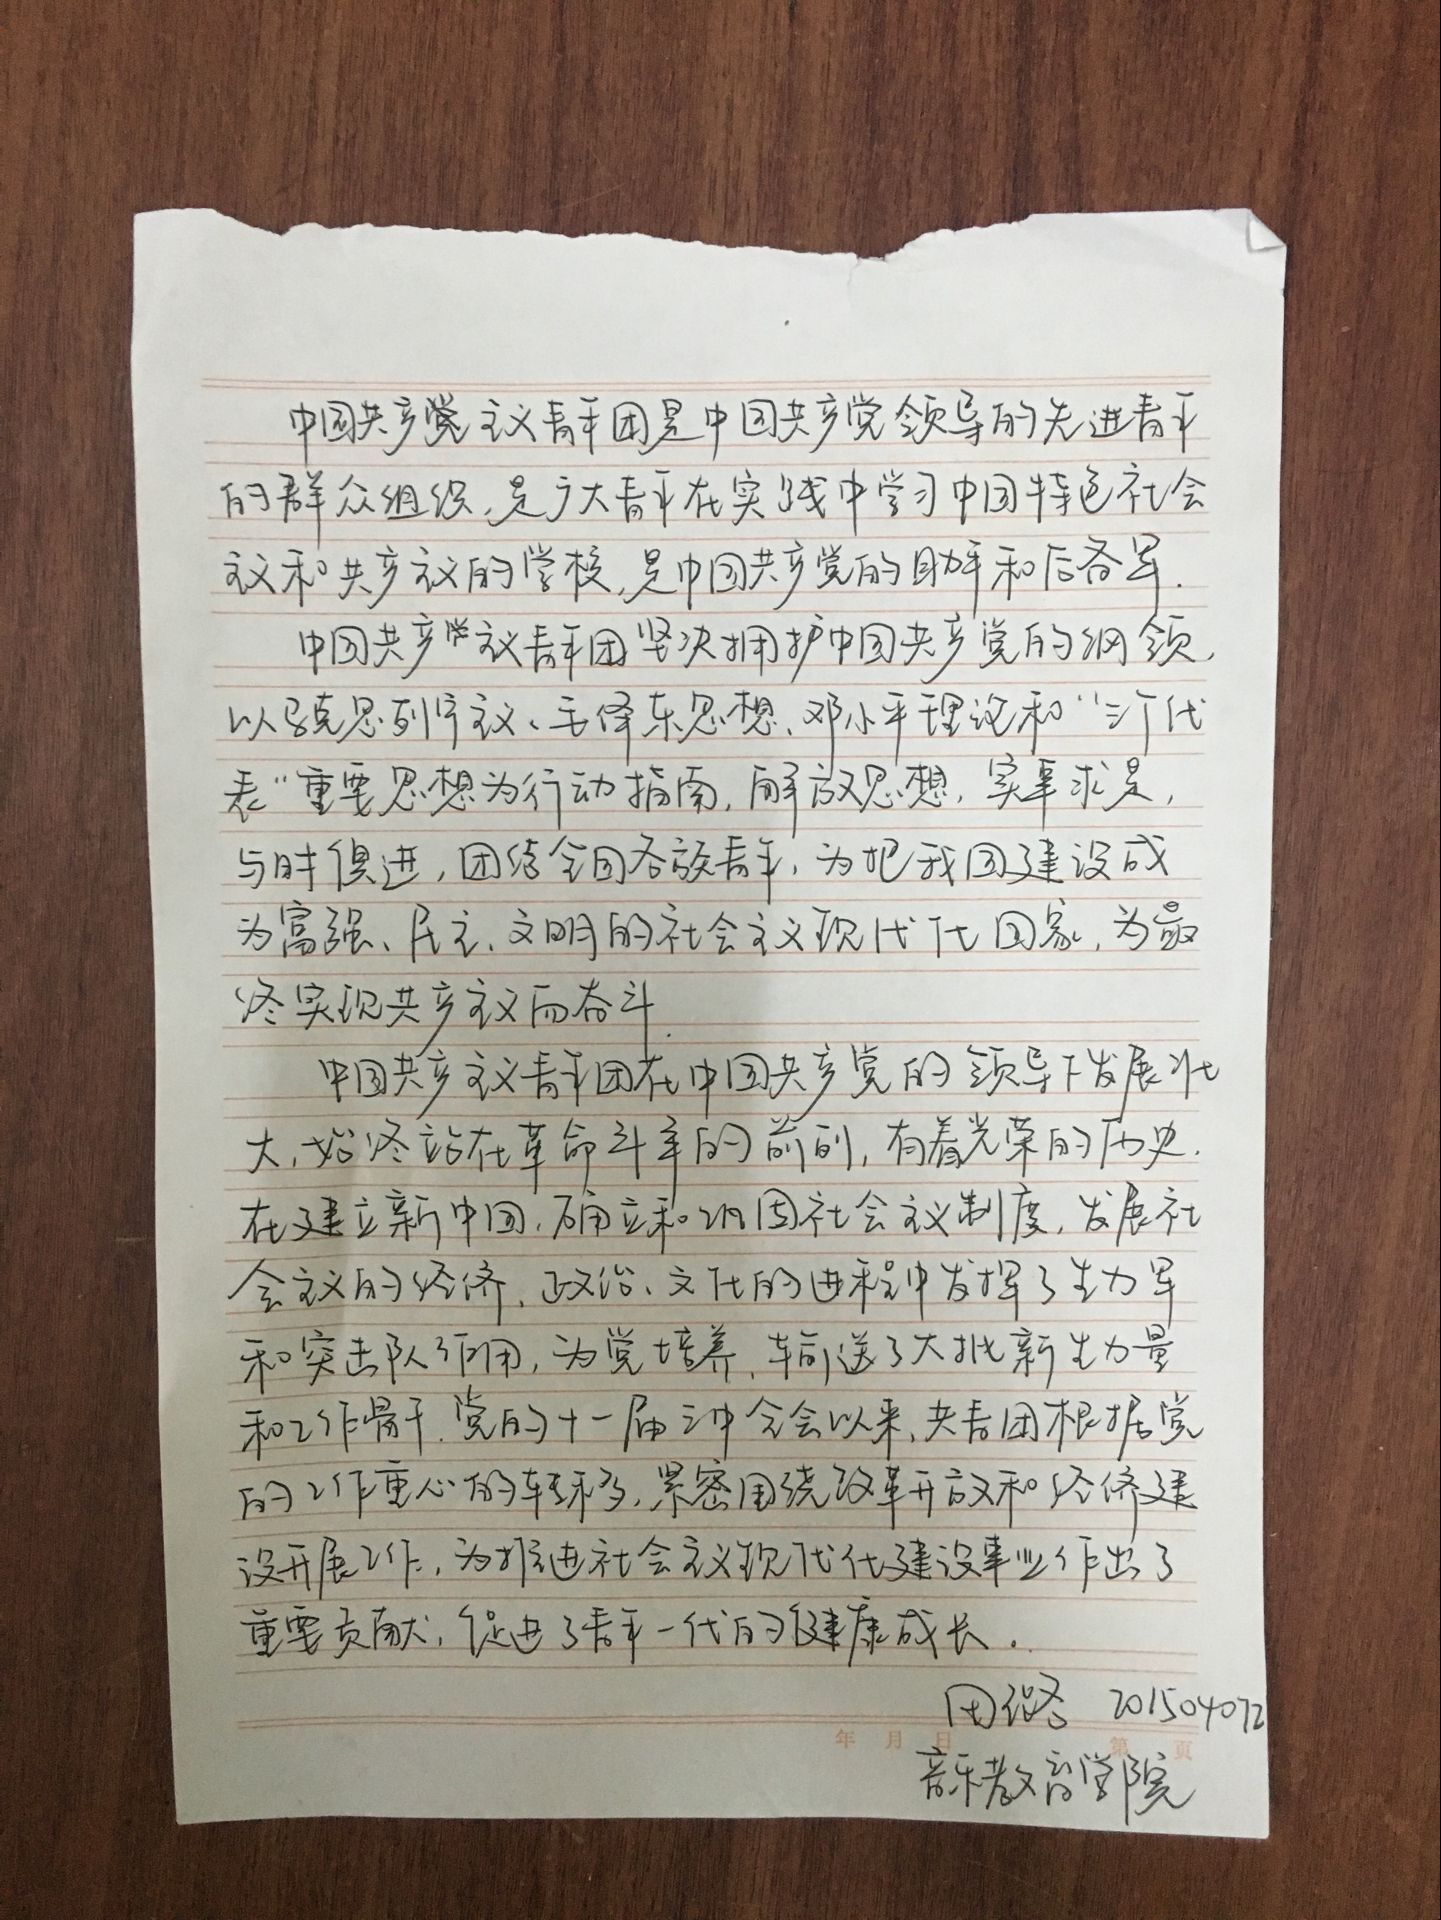 中国共产党主义青年团是中国共产党领导的先进青年
的群众组织，是广大青年在实践中学习中国特色社会
主义和共产主义的学校，是中国共产党的助手和后备军.
中国共产主义青年团坚决拥护中国共产党的纲领，
以马克思列宁主义、毛泽东思想、邓小平理论和“三个代
表”重要思想为行动指南，解放思想，实事求是，
与时俱进，团结全国各族青年，为把我国建设成
为富强、民主、文明的社会主义现代化国家，为最
终实现共产主义而奋斗.
中国共产主义青年团在中国共产党的领导下发展壮
大，始终站在革命斗争的前列，有着光荣的历史.
在建立新中国，确立和巩固社会主义制度，发展社
会主义的经济、政治、文化的进程中发挥了生力军
和突击队作用，为党培养、输送了大批新生力量
和工作骨干.党的十一届三中全会以来，共青团根据党
的工作重心的转移，紧密围绕改革开放和经济建
设开展工作，为推进社会主义现代化建设事业作出了
重要贡献，促进了青年一代的健康成长。
田 201504072
年 月 日 第 页
音乐教育学院